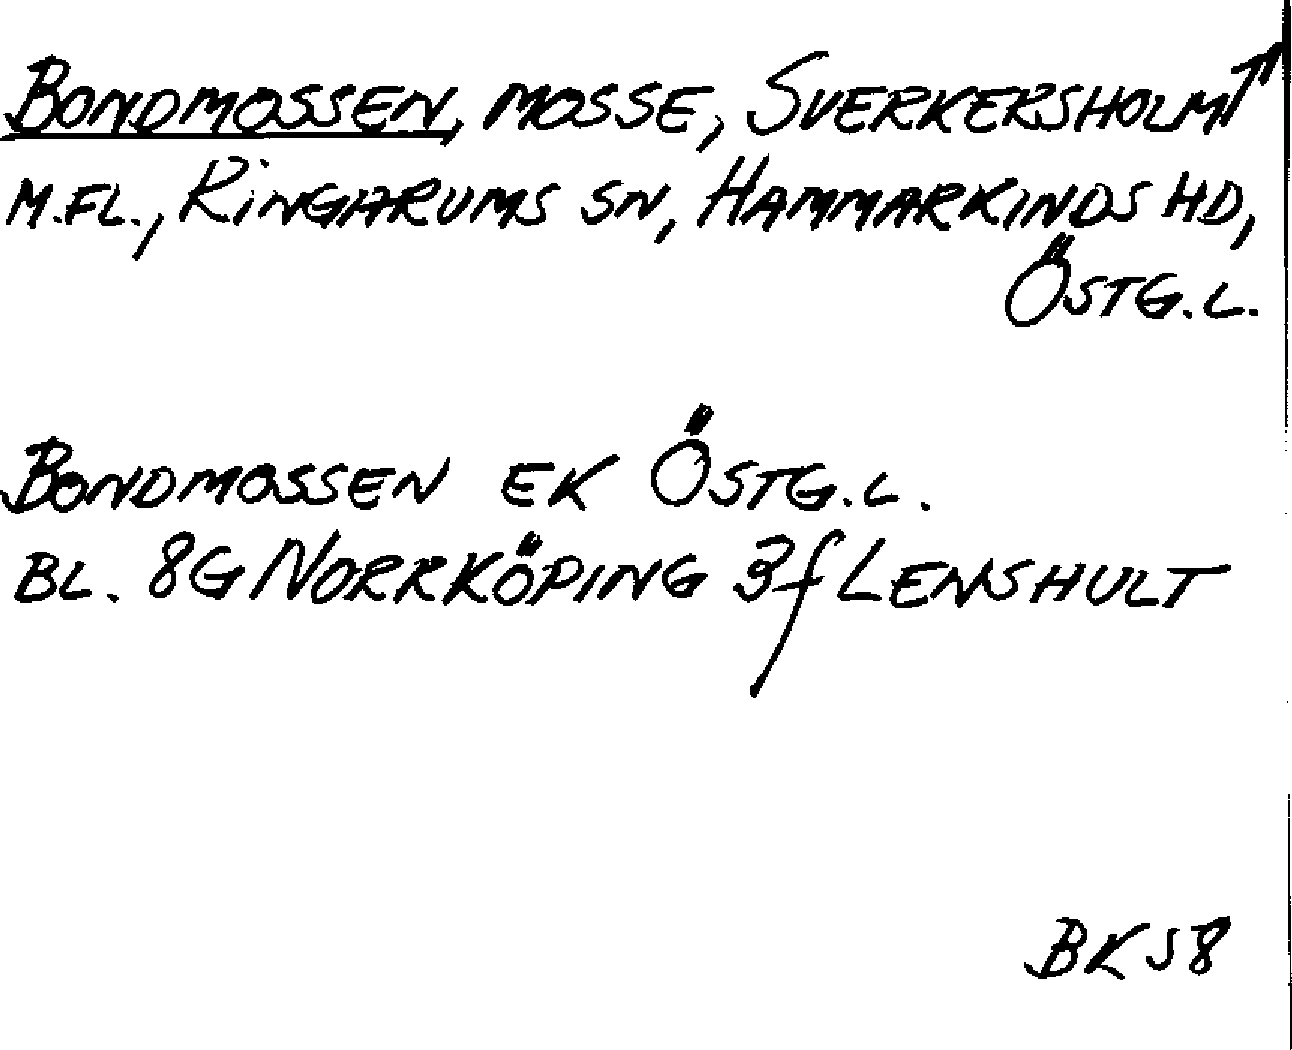 BONDMOSSEN, MOSSE, SVERKERSHOLM↑
M.FL., RINGARUMS SN, HAMMARKINDS HD,
ÖSTG.L.
BONDMOSSEN EK ÖSTG.L.
BL. 8G NORRKÖPING 3f LENSHULT
BKS8